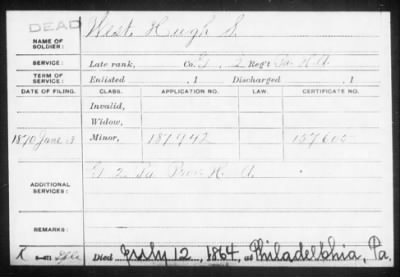 DEAD
NAME OF SOLDIER: West, Hugh S.
SERVICE: Late rank, Co. G, 2 Reg't Pa. H.A.
TERM OF SERVICE: Enlisted , 1 Discharged , 1
DATE OF FILING. CLASS. APPLICATION NO. LAW. CERTIFICATE NO.
Invalid,
Widow,
1870 June 3 Minor, 187942
ADDITIONAL SERVICES: G 2 Pa Prov. H. A.
REMARKS:
Died July 12, 1864, at Philadelphia, Pa.